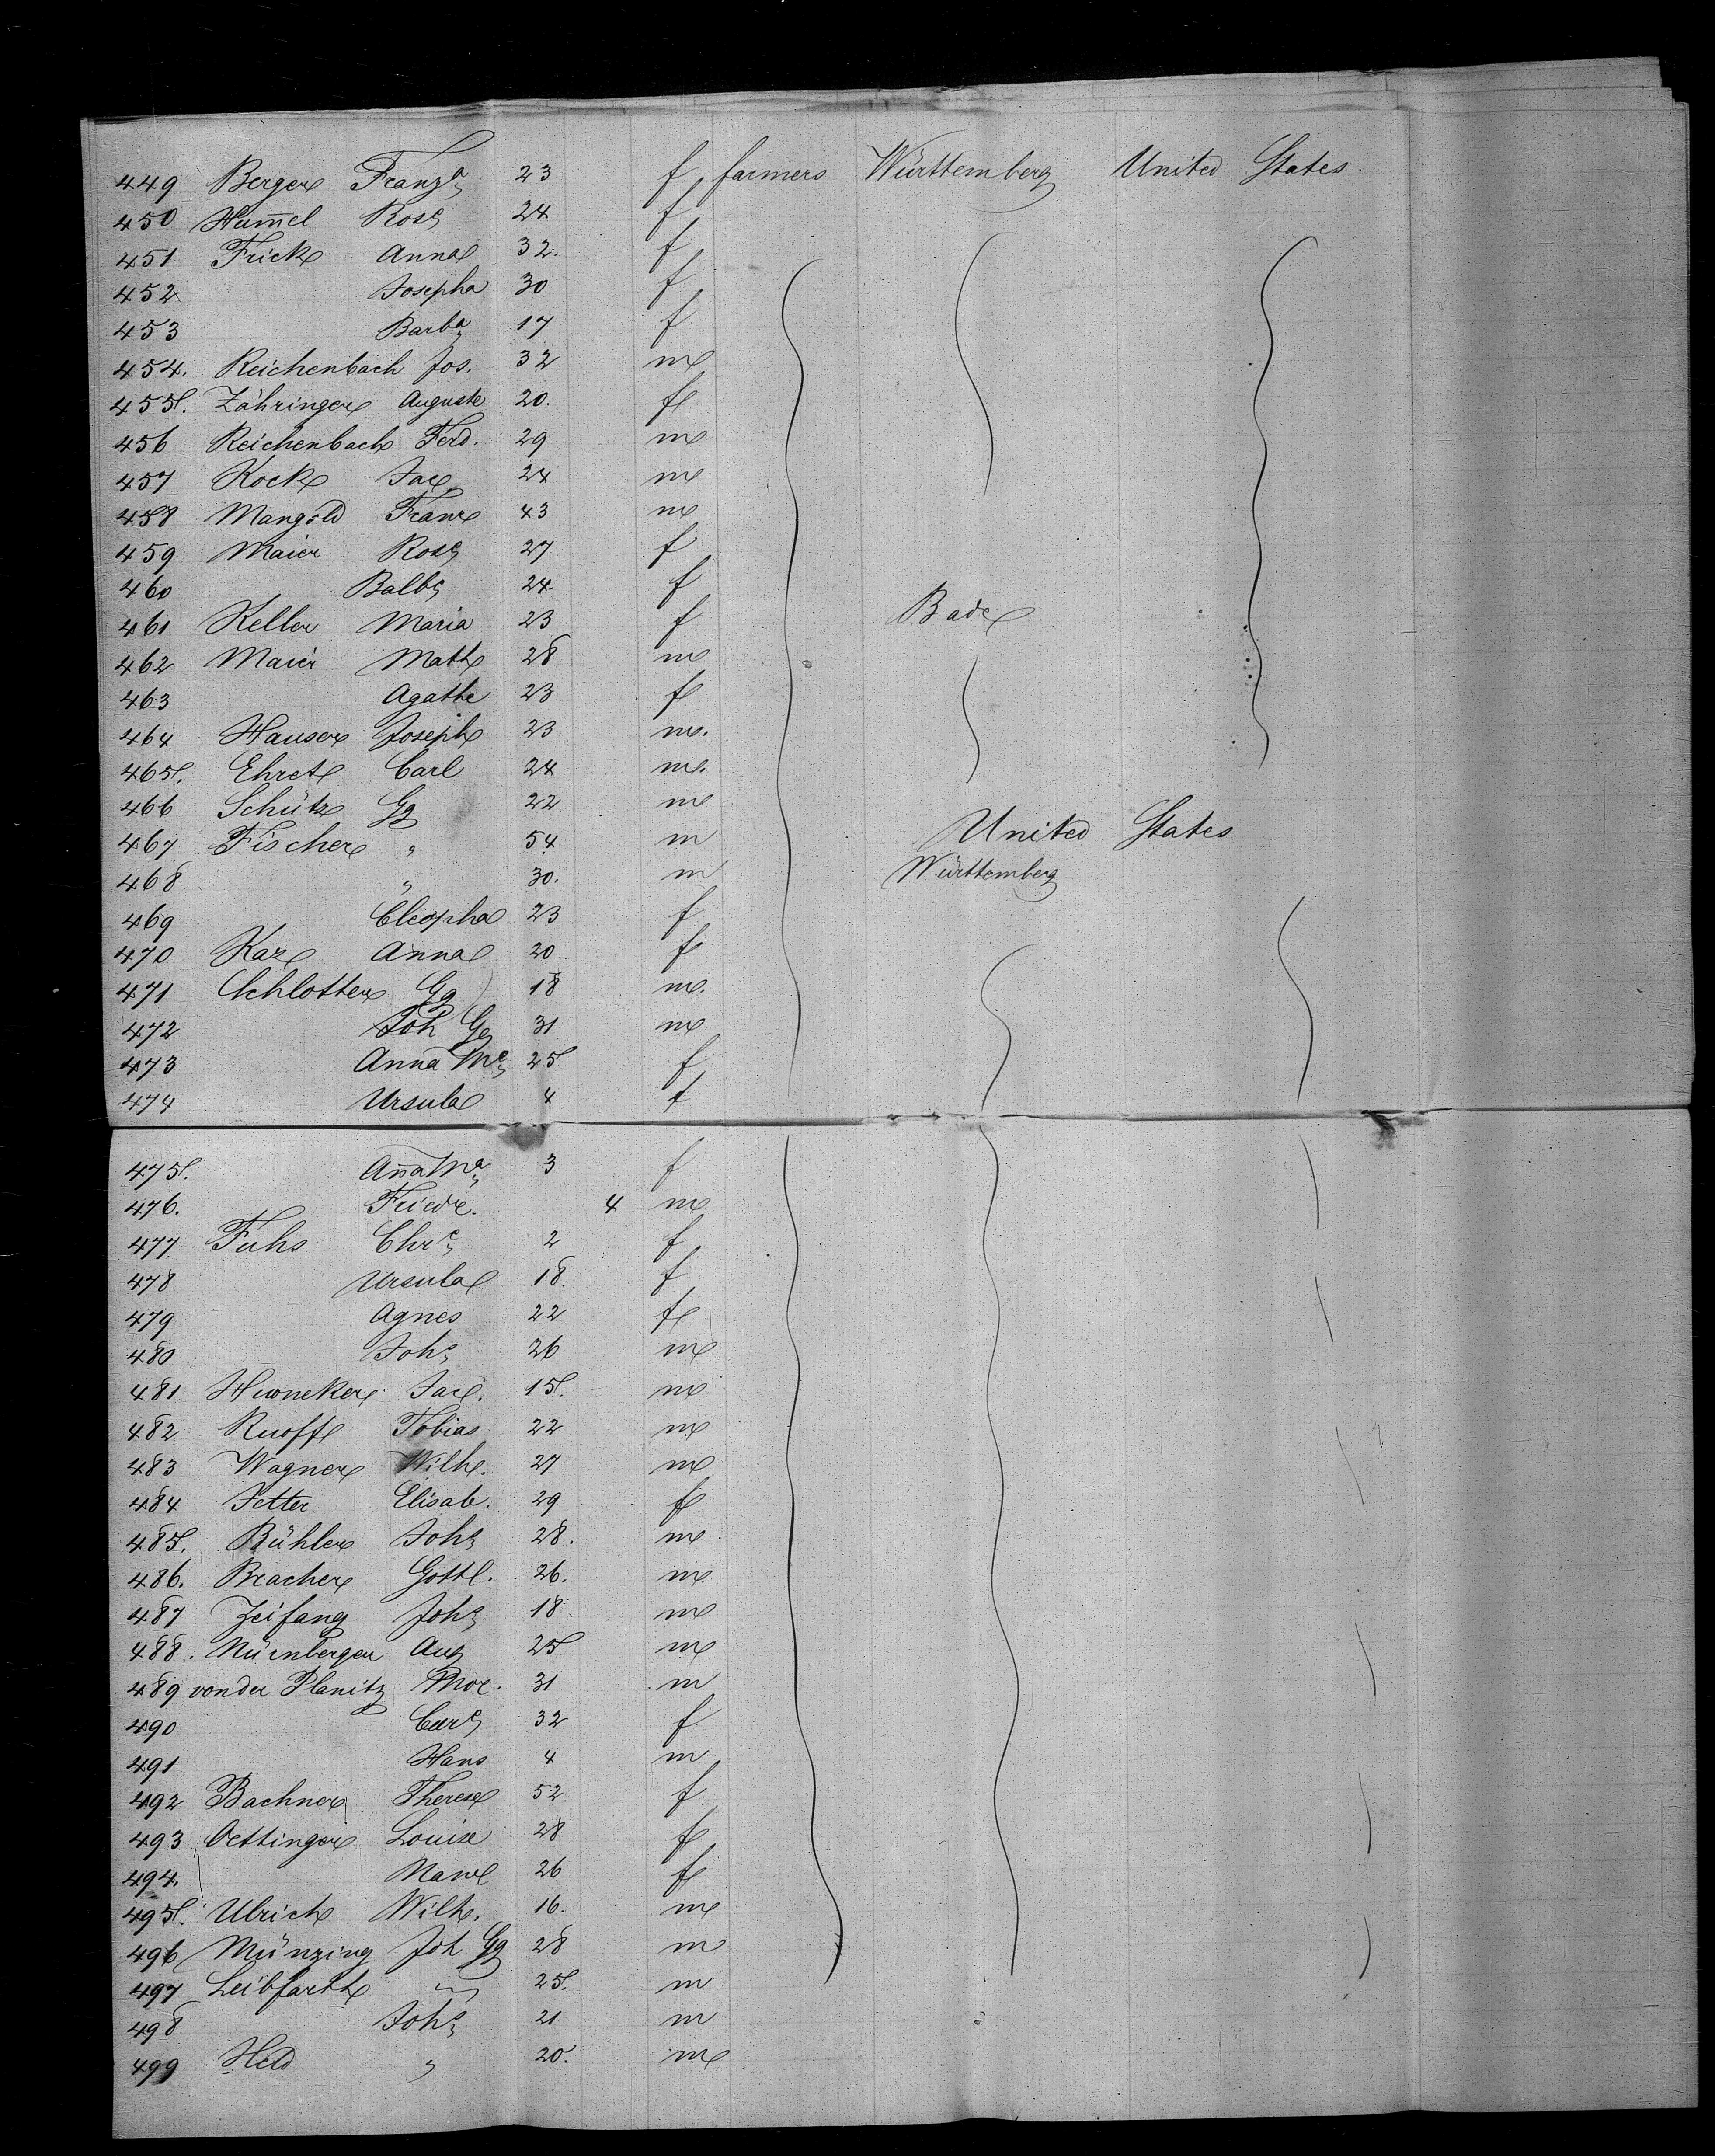 449 Berger Franz&ª 23 f farmers Württemberg United States
450 Hummel Rosª 24 f
451 Frick Anna 32. f
452 Josepha 30 f
453 Barbª 17 f
454. Reichenbach Jos. 32 m
455. Zähringer Auguste 20. f
456 Reichenbach Ferd. 29 m
457 Kock Jac 24 m
458 Mangold Franz 43 m
459 Maier Rosª 27 f
460 Balbª 24 f
461 Keller Maria 23 f Bade
462 Maier Math 28 m
463 Agathe 23 f
464 Hauser Joseph 23 m.
465. Ehret Carl 24 m.
466 Schütz Gg 22 m
467 Fischer " 54 m United States
468 " 30. m Württemberg
469 Cleopha 23 f
470 Anna 20 f
471 Schlotter Gg 18 m.
472 Joh Gg 31 m
473 Anna Mª 25 f
474 Ursula 4 f
475. Anna Mª 3 f
476. Friedr. 4 m
477 Fuhs Chrª 2 f
478 Ursula 18. f
479 Agnes 22 f
480 Johs 26 m
481 Jac. 15. m
482 Ruoff Tobias 22 m
483 Wagner Wilh. 27 m
484 Fetter Elisab. 29 f
485. Bühler Johs 28. m
486. Bracher Gottl. 26. m
487 Zeifang Johs 18 m
488. Nürnberger Aug 25 m
489 von der Planitz Mor. 31 m
490 Carª 32 f.
491 Hans 4 m
492 Bachner Therese 52 f
493 Oettinger Louise 28 f
494. 26 f
495. Ulrich Wilh. 16. m
496 Münzing Joh Gg 28 m
497 Leibfarth " 25. m
498 Johs 21 m
499 Held " 20. m